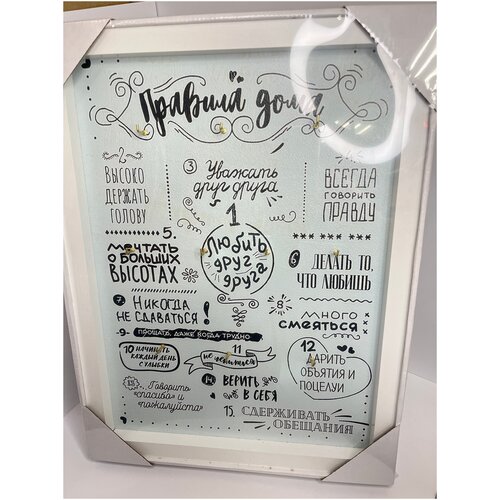 Правила дома
2
Высоко
держать
голову
3 Уважать
друг друга
Всегда
говорить
правду
1
Любить
друг
друга
5.
мечтать
о больших
высотах
6 делать то,
что любишь
7. Никогда
не сдаваться!
8
много
смеяться
-9- прощать, даже когда трудно
10 начинать
каждый день
с улыбки
11
12
Дарить
объятия и
поцелуи
Говорить
"спасибо" и
"пожалуйста"
14 Верить
в себя
15. Сдерживать
обещания